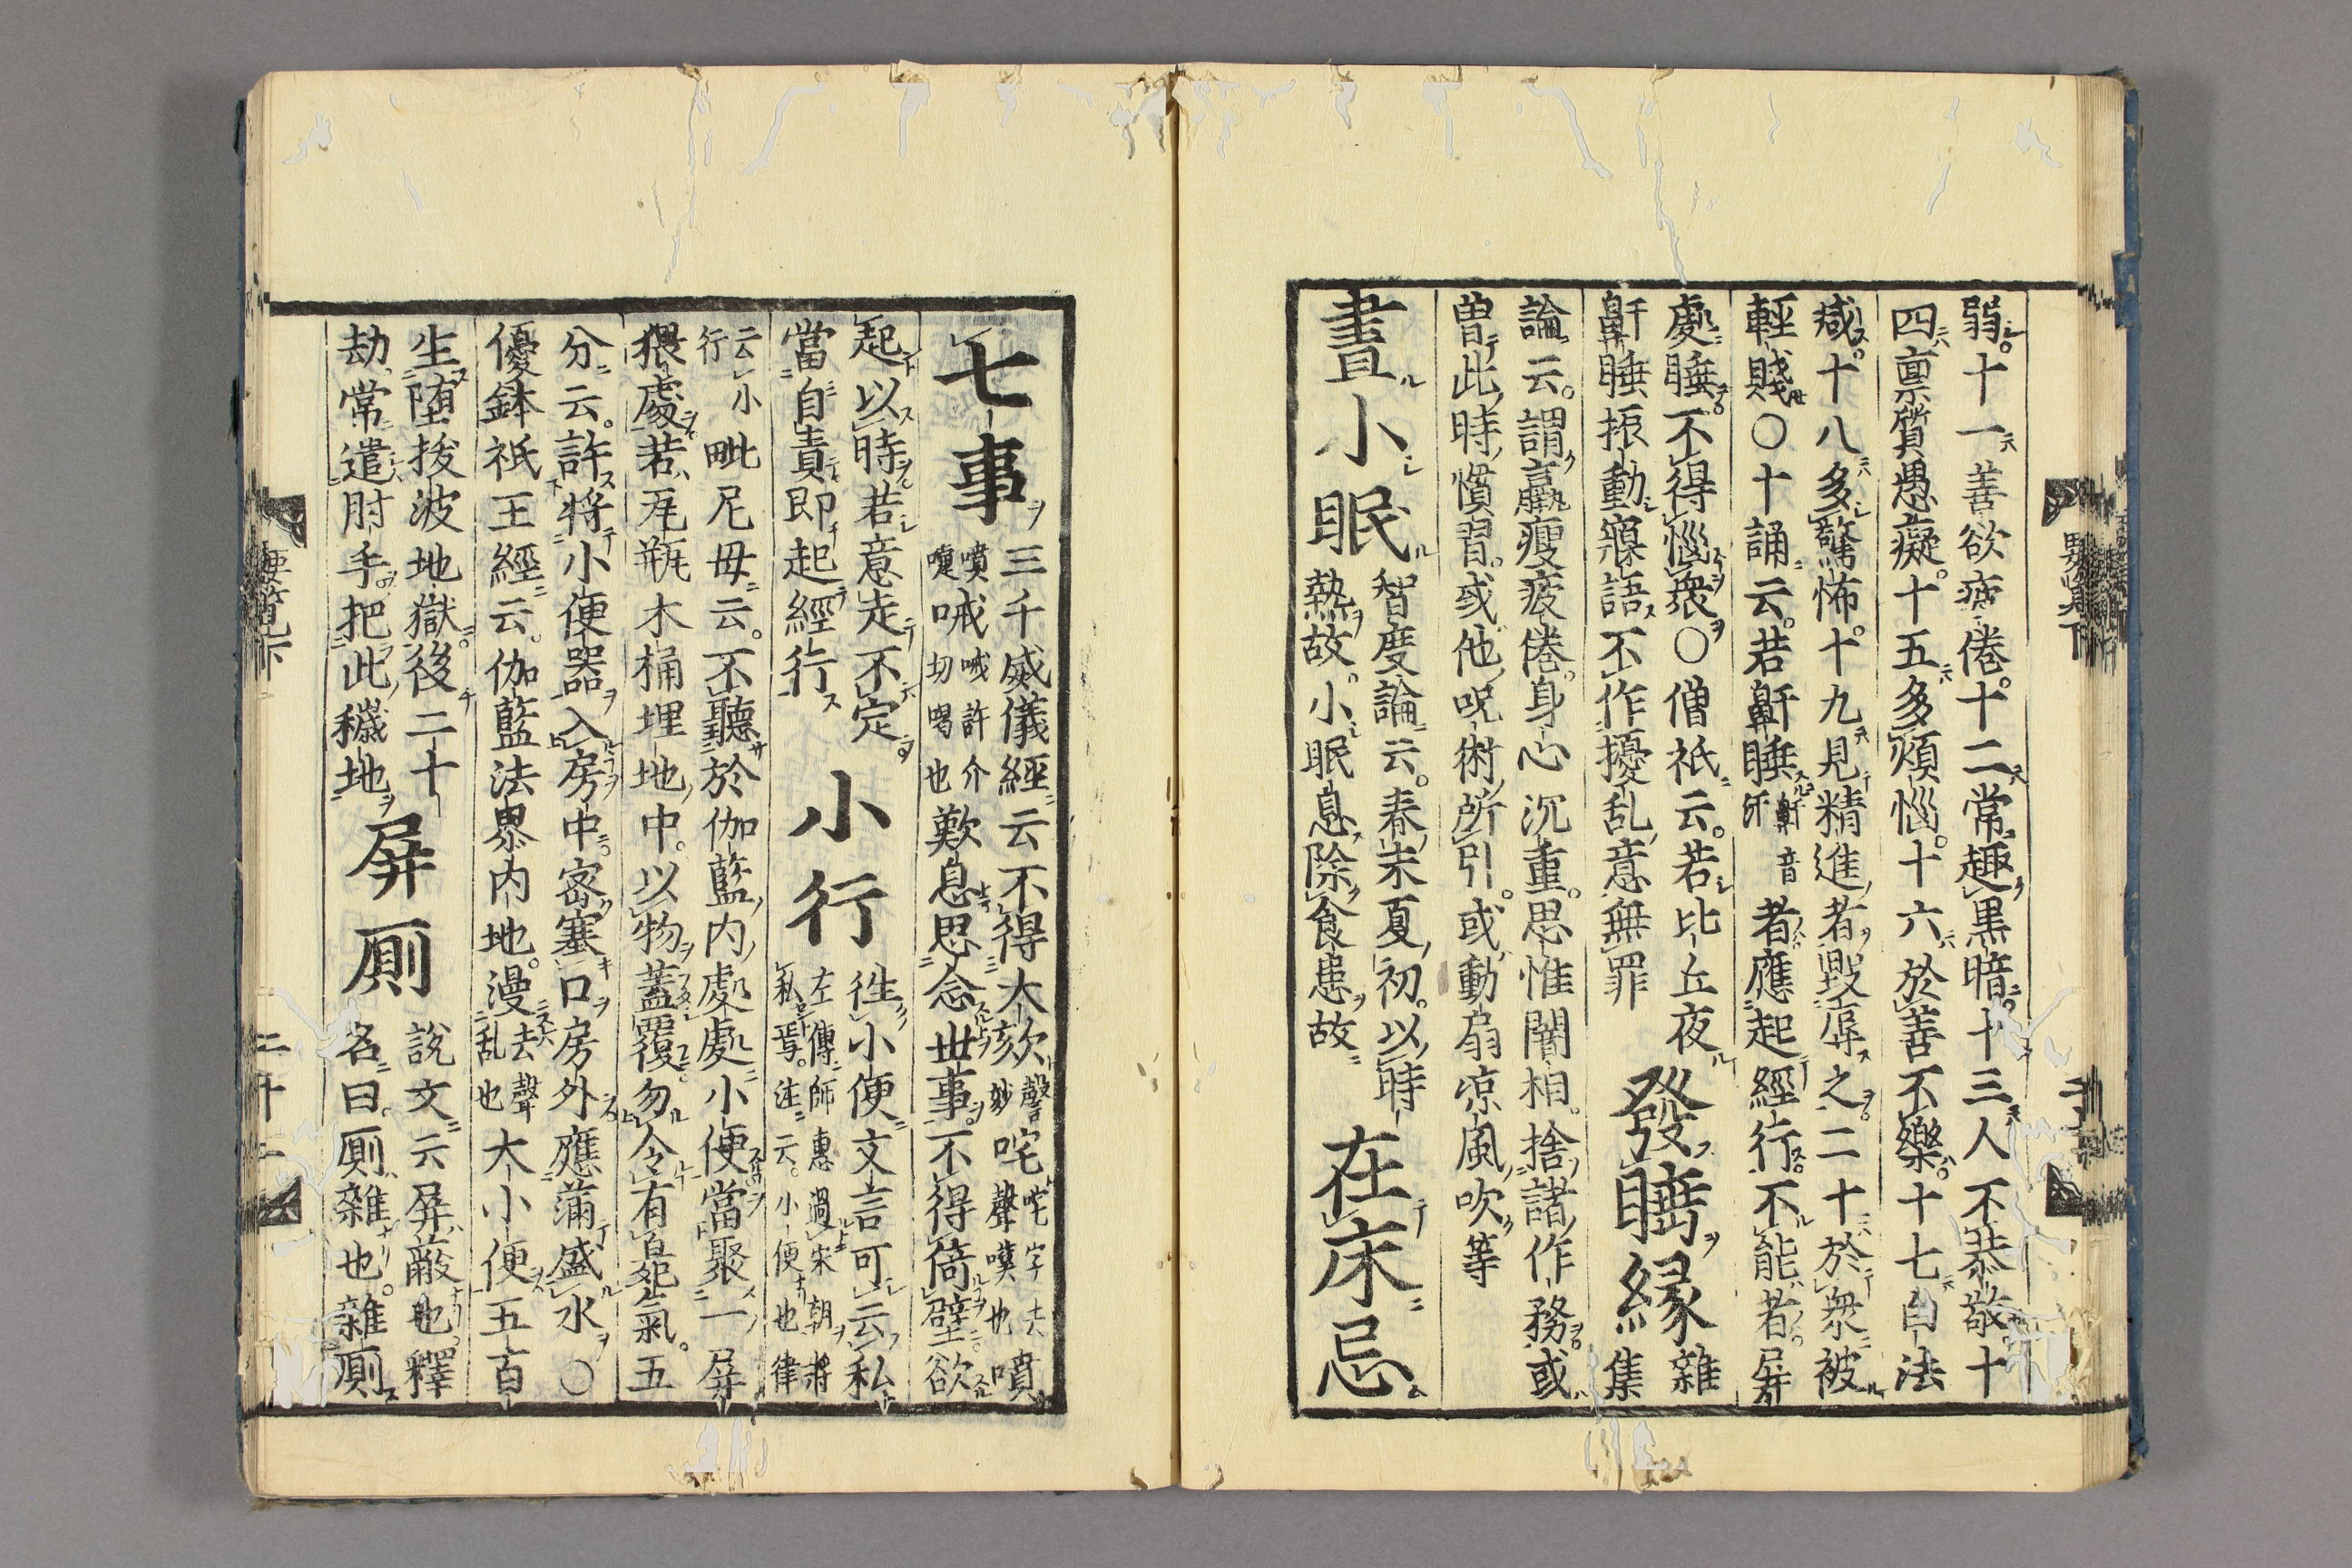 弱。十一善欲疲倦。十二常趣黒暗。十三人不恭敬十
四禀質愚癡。十五多煩惱。十六於善不樂。十七自法
減。十八多驚怖。十九見精進者毀辱之。二十於衆被
輕賤〇十誦云。若鼾睡者應起經行。不能者。屏
處睡。不得惱衆〇僧祇云。若比丘夜
鼾睡振動寱語不作擾乱意無罪
發睡縁
雜
集
論云。謂羸瘦疲倦。身心沉重。思惟闇相。捨諸作務。或
曽此時慣習。或他呪術所引。或動扇凉風吹等
晝小眠
智度論云。春末夏初。以時
熱故。小眠息除食患故
在床忌
七事
三千威儀經云不得大欬
聲
咤
噴
噴嚏
歎息思念世事。不得倚壁欲
起以時若意走不定
當自責即起經行
小行
徃小便文言可云私
左傳師惠過宋朝將
私焉。注云。小便也律
云小
行
毗尼毋云。不聽於伽藍内處處小便當聚一屏
猥處若瓦瓶木桶埋地中。以物蓋覆勿令有臭氣。五
分云。許將小便器入房中密塞口房外應蒲盛水〇
優鉢祇王經云。伽藍法界内地。漫
去聲
乱也
大小便五百
生堕拔波地獄。後二十
劫。常遣肘手把此穢地
屏厠
說文云屏蔽也。釋
名曰。厠雜也。雜厠
要覽下
二十二